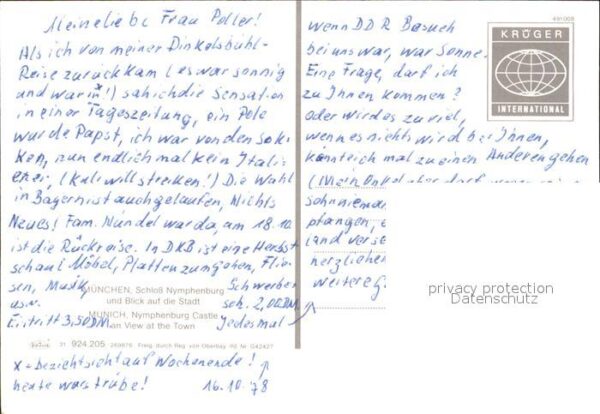 Meine liebe Frau Poller!
Als ich von meiner Dinkelsbühl-
Reise zurückkam (es war sonnig
und warm x!) sah ich die Sensation
in einer Tageszeitung, ein Pole
wurde Papst, ich war von den So
nun endlich mal kein Itali
ener, (will streiken!) Die Wahl
in Bayern ist auch gelaufen, Nichts
Neues! Fam. Nundel war da, am 18.10.
ist die Rückreise. In DKB ist eine Herbst
schau! Möbel, Platten zum gehen, Flie-
sen, Musik, Schwerbe
usw. sch. 2,00DM
Eintritt 3,50DM Jedesmal
x = bezieht sich auf Wochenende!
heute wars trübe! 16.10.78
MÜNCHEN, Schloß Nymphenburg
und Blick auf die Stadt
MUNICH, Nymphenburg Castle
an View at the Town
31 924.205
Freig. durch Reg. von Oberbay. Nr. G42427
wenn DDR Besuch
bei uns war, war Sonne.
Eine Frage, darf ich
zu Ihnen kommen?
oder wird es zu viel,
wenn es nichts wird bei Ihnen,
könnte ich mal zu einem Anderen gehen
(Mein Onkel aber darf
so niemand
pfangen,
land verse
herzlichen
weitere G
KRÜGER
INTERNATIONAL
privacy protection
Datenschutz